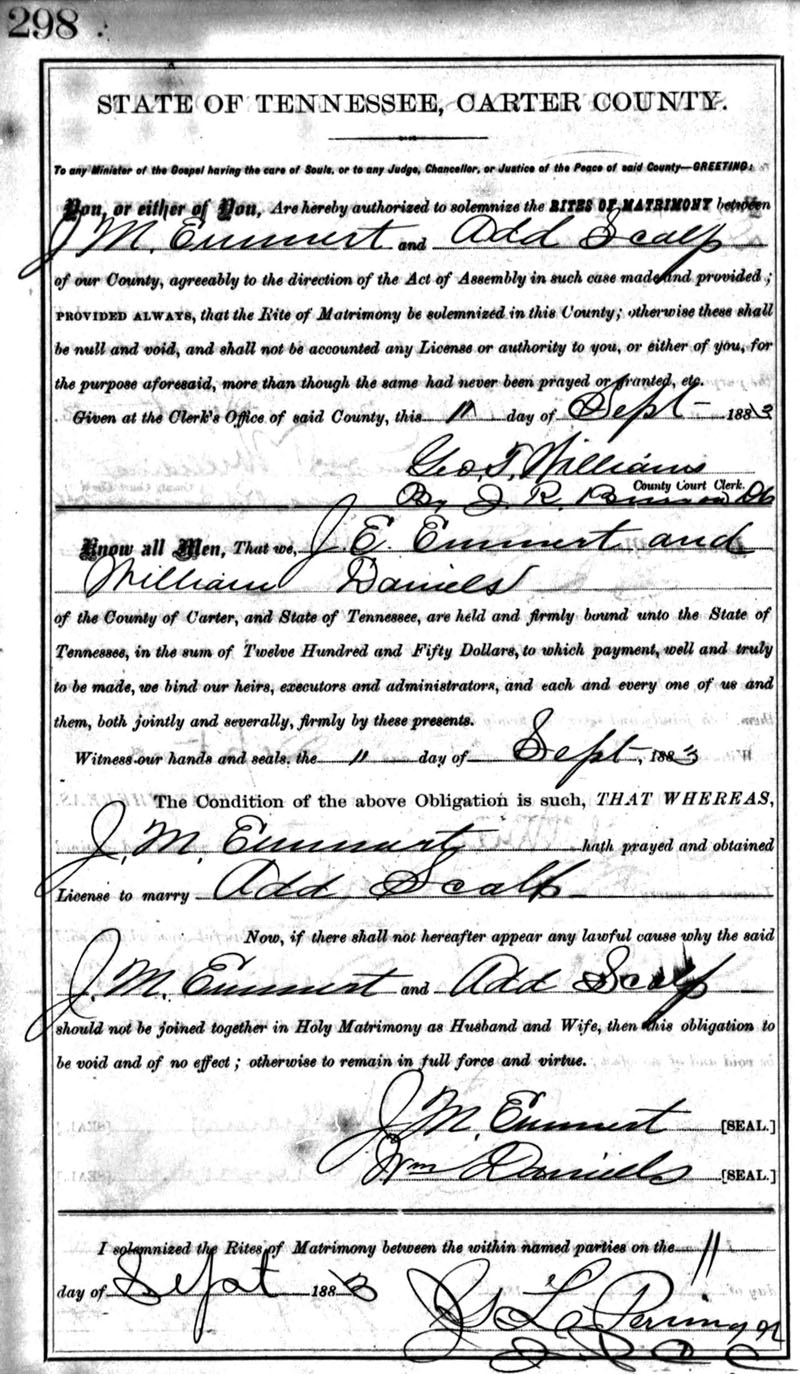 298
STATE OF TENNESSEE, CARTER COUNTY.
To any Minister of the Gospel having the care of Souls, or to any Judge, Chancellor, or Justice of the Peace of said County—GREETING:
You, or either of You, Are hereby authorized to solemnize the RITES OF MATRIMONY between
J M. Emmert and Add Scalf
of our County, agreeably to the direction of the Act of Assembly in such case made and provided;
PROVIDED ALWAYS, that the Rite of Matrimony be solemnized in this County; otherwise these shall
be null and void, and shall not be accounted any License or authority to you, or either of you, for
the purpose aforesaid, more than though the same had never been prayed or granted, etc.
Given at the Clerk's Office of said County, this 11 day of Sept 1883
Geo. T. Williams
County Court Clerk.
By J. R.
Know all Men, That we, J. E. Emmert and
William Daniels
of the County of Carter, and State of Tennessee, are held and firmly bound unto the State of
Tennessee, in the sum of Twelve Hundred and Fifty Dollars, to which payment, well and truly
to be made, we bind our heirs, executors and administrators, and each and every one of us and
them, both jointly and severally, firmly by these presents.
Witness our hands and seals, the 11 day of Sept, 1883
The Condition of the above Obligation is such, THAT WHEREAS,
J. M. Emmert hath prayed and obtained
License to marry Add Scalf
Now, if there shall not hereafter appear any lawful cause why the said
J. M. Emmert and Add Scalf
should not be joined together in Holy Matrimony as Husband and Wife, then this obligation to
be void and of no effect; otherwise to remain in full force and virtue.
J. M. Emmert [SEAL.]
Wm Daniels [SEAL.]
I solemnized the Rites of Matrimony between the within named parties on the 11
day of Sept 1883